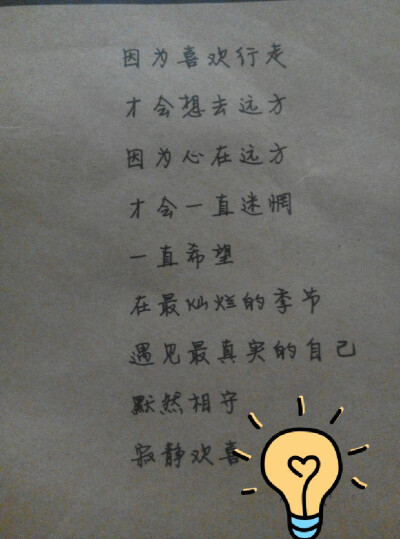 因为喜欢行走
才会想去远方
因为心在远方
才会一直迷惘
一直希望
在最灿烂的季节
遇见最真实的自己
默然相守
寂静欢喜